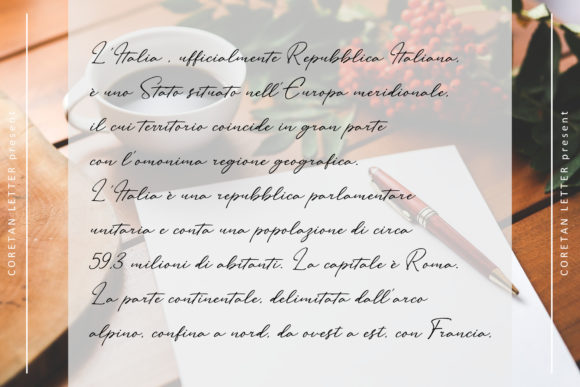 L'Italia , ufficialmente Repubblica Italiana,
è uno Stato situato nell'Europa meridionale,
il cui territorio coincide in gran parte
con l'omonima regione geografica.
L'Italia è una repubblica parlamentare
unitaria e conta una popolazione di circa
59,3 milioni di abitanti. La capitale è Roma.
La parte continentale, delimitata dall'arco
alpino, confina a nord, da ovest a est, con Francia,
CORETAN LETTER present
CORETAN LETTER present